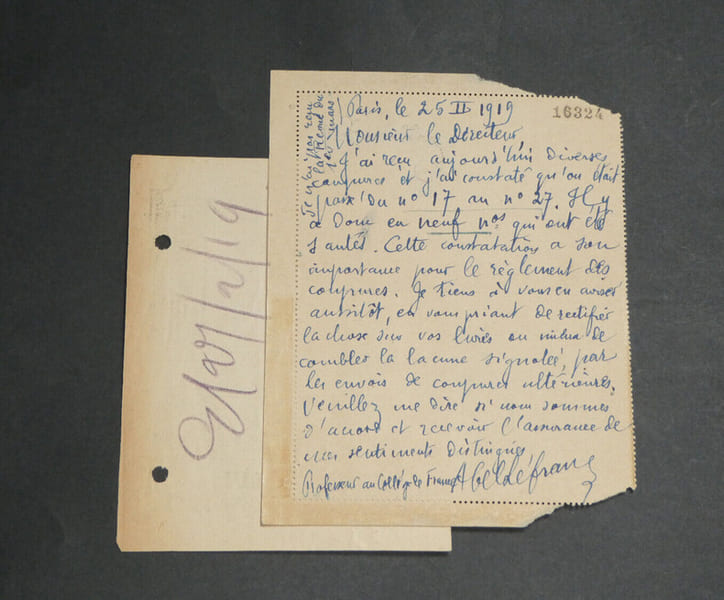 Paris, le 25 II 1919
16324
Monsieur le Directeur,
J'ai reçu aujourd'hui diverses
coupures et j'ai constaté qu'on était
passé du nº 17 au nº 27. Il y
a donc eu neuf nos qui ont été
sautés. Cette constatation a son
importance pour le règlement des
coupures. Je tiens à vous en aviser
aussitôt, en vous priant de rectifier
la chose sur vos livres ou mieux de
combler la lacune signalée, par
les envois de coupures ultérieures.
Veuillez me dire si nous sommes
d'accord et recevoir l'assurance de
mes sentiments distingués
Abel Lefranc
Professeur au Collège de France
Je n'ai pas reçu